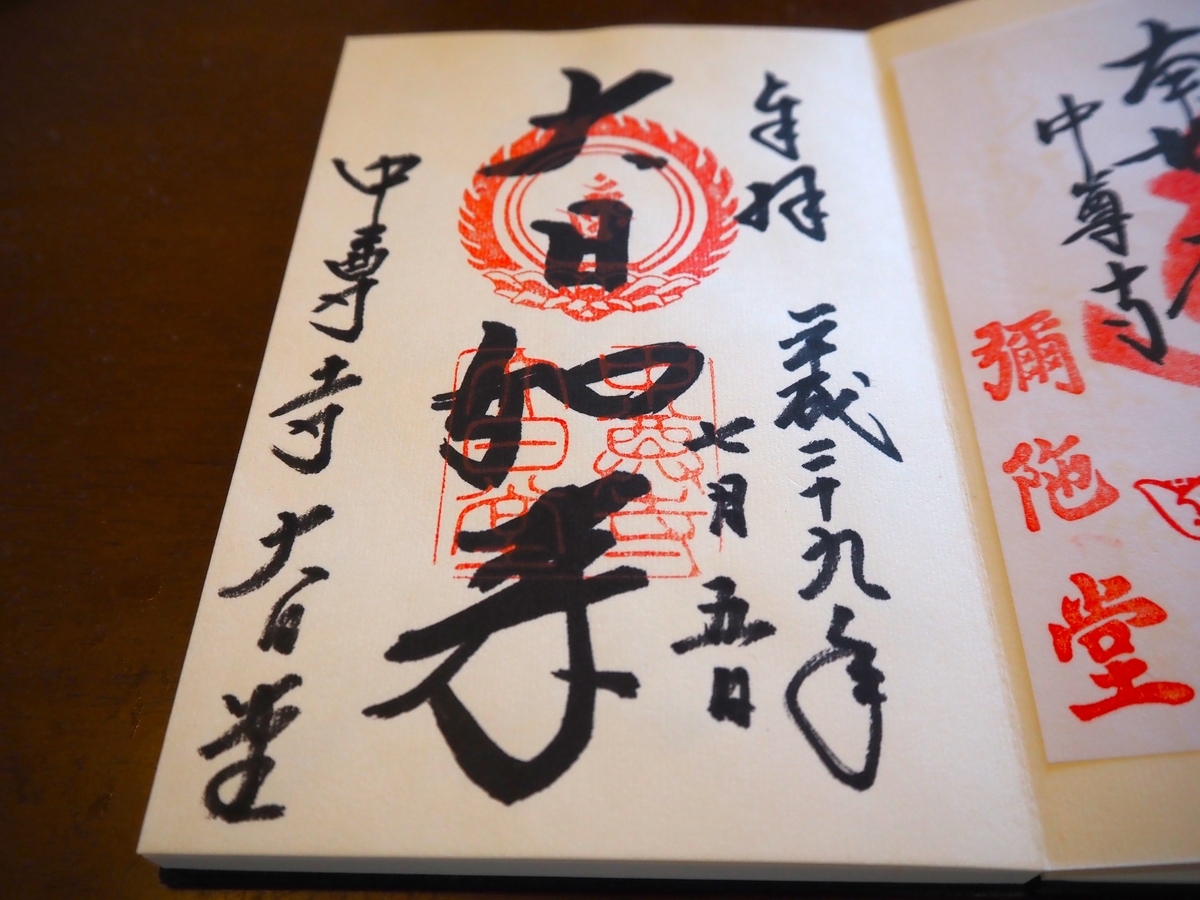 南
中尊寺
彌陀堂
奉拝
平成二十九年
七月五日
大日如来
中尊寺大日堂